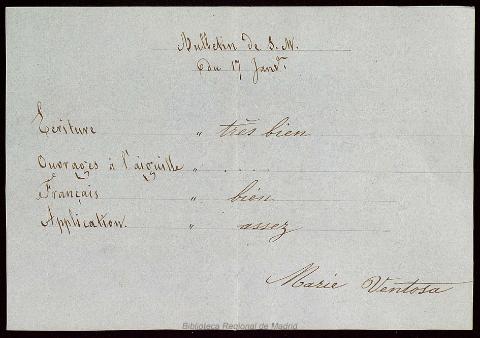 Bulletin de S. M.
du 17 Janr.
Ecriture " très bien
Ouvrages à l'aiguille " . . . .
Français " bien
Application. " assez
Marie Ventosa
Biblioteca Regional de Madrid